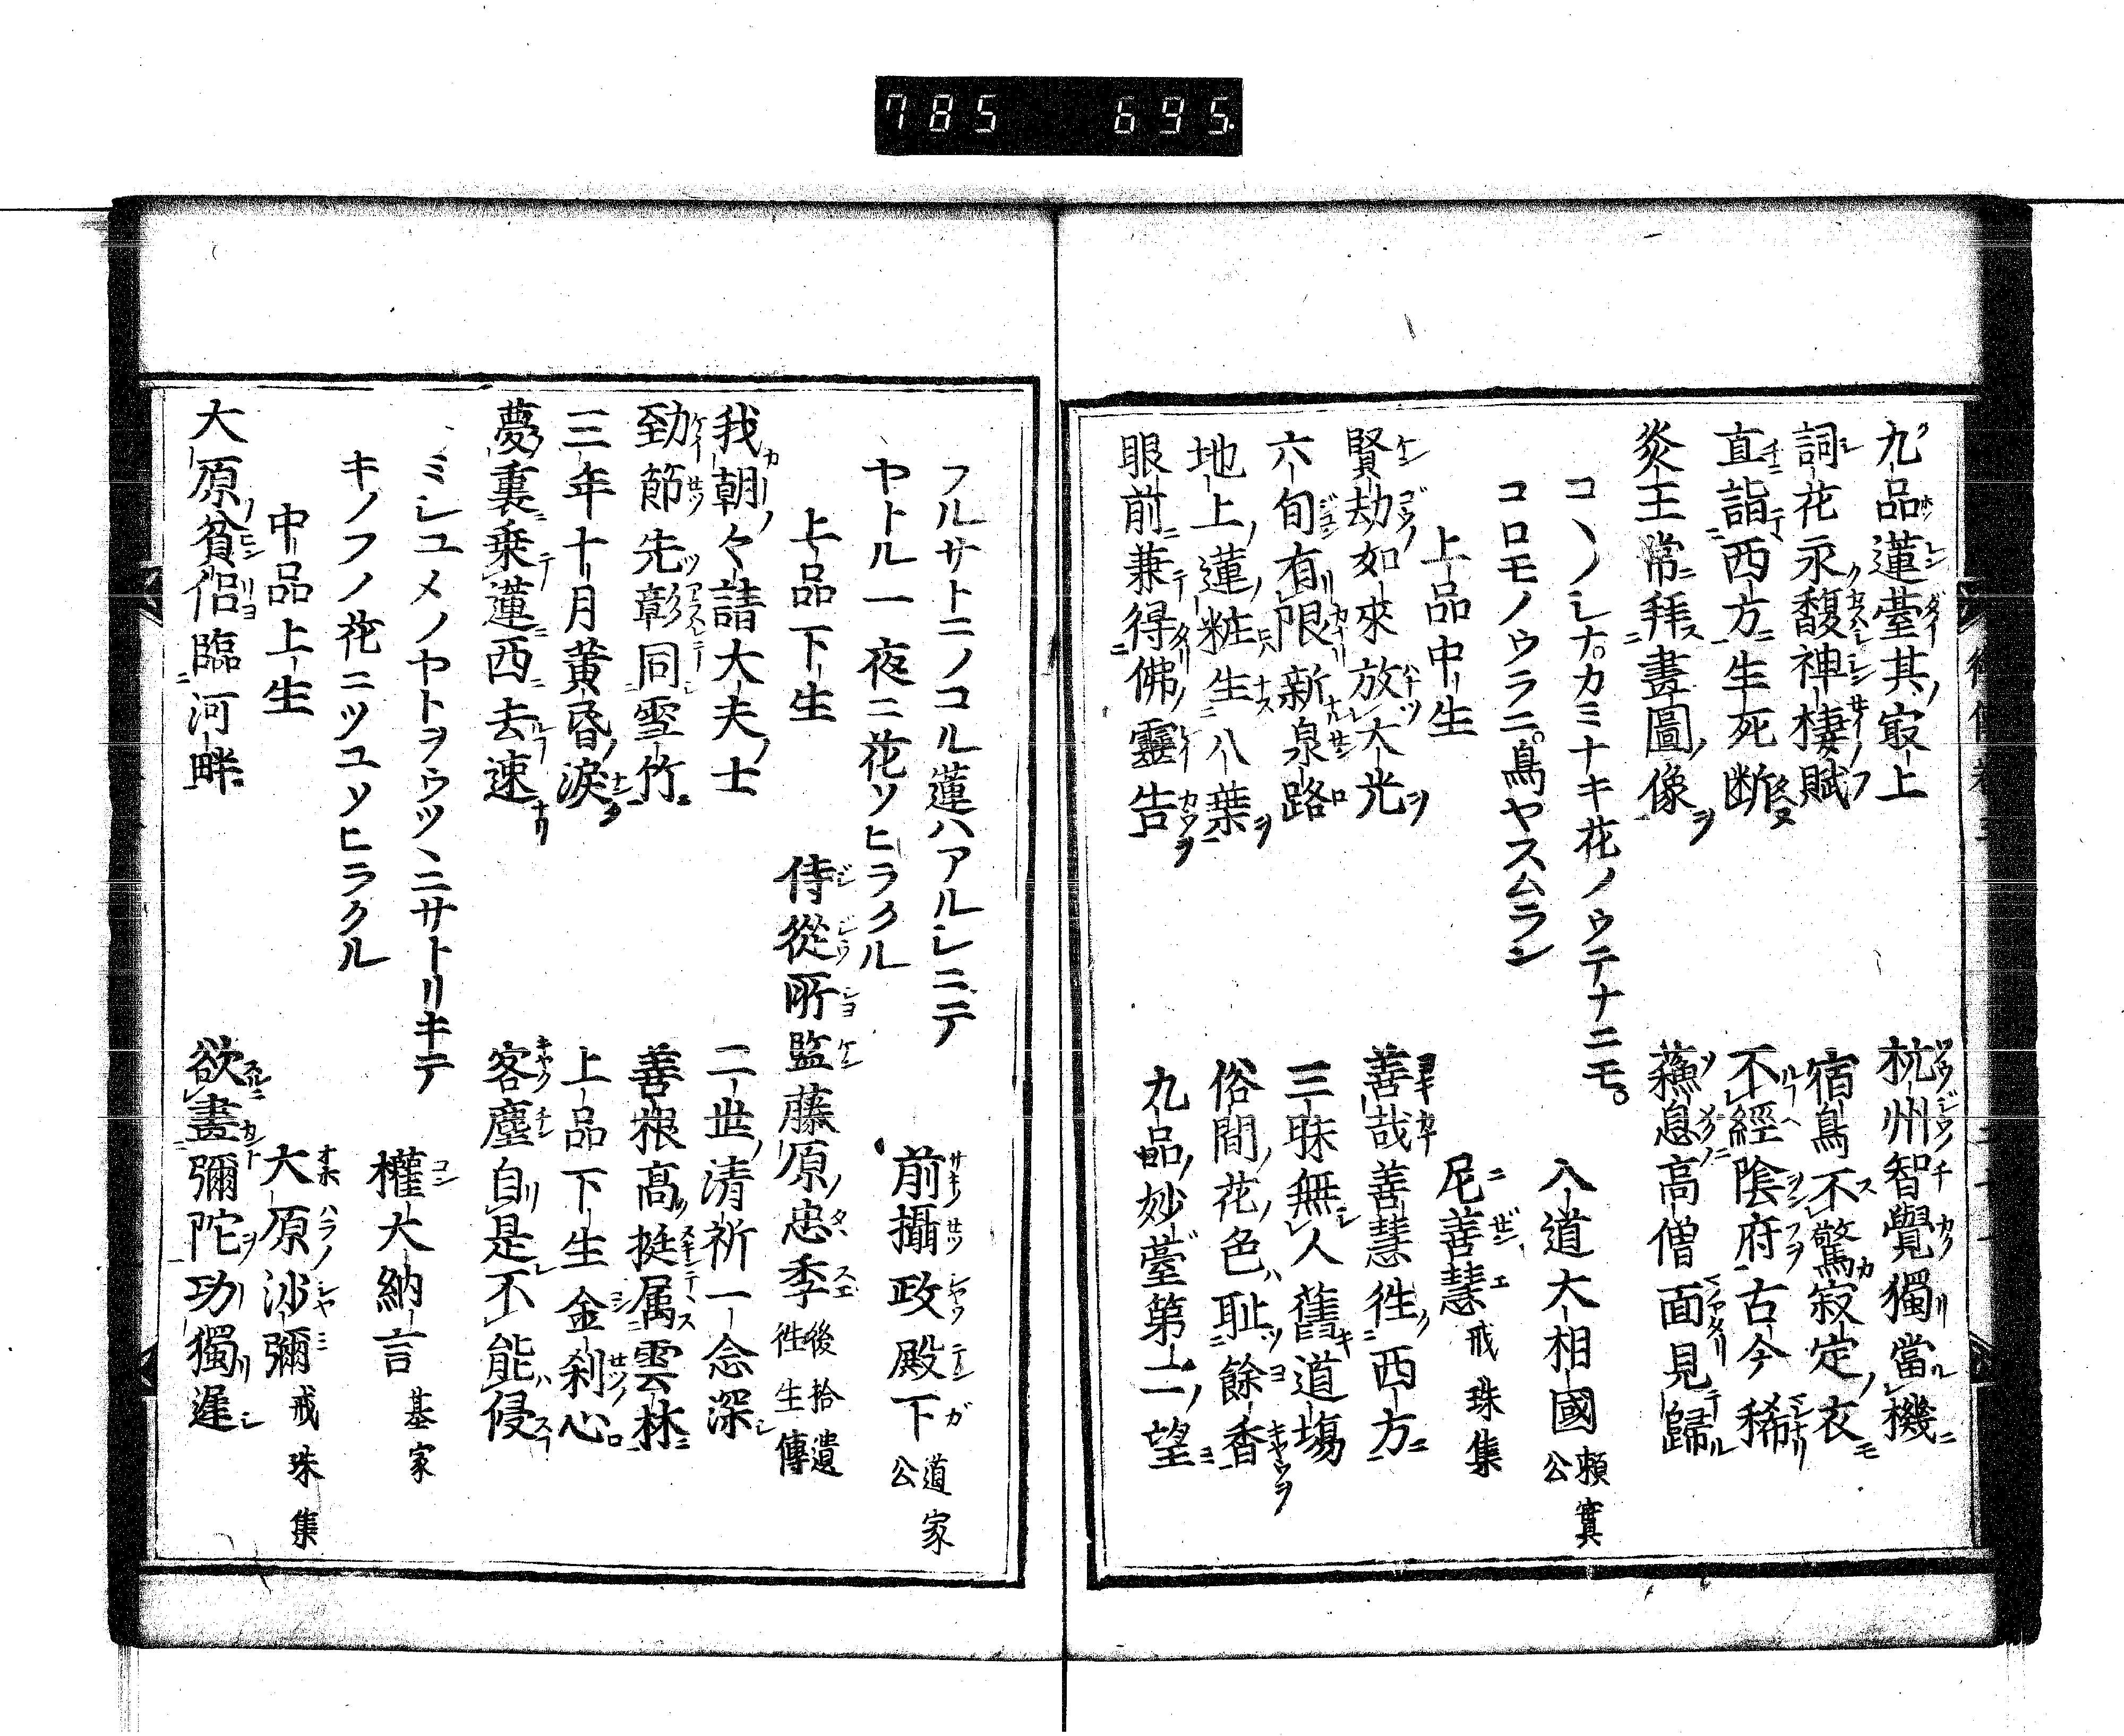 785 695
九品蓮臺其ノ最上 杭州智覺獨當機
詞花永馥神棲賦 宿鳥不驚寂定衣
直詣西方生死断 不經陰府古今稀
炎王常拜畫圖像 蘓息高僧面見歸
コヽノシナ。カミナキ花ノウテナニモ。
コロモノウラニ。鳥ヤスムラン
八道大相國 頼實公
上品中生 尼善慧 戒珠集
賢劫如來放大光 善哉善慧徃西方
六旬有限新泉路 三昧無人舊道塲
地上蓮粧生八葉 俗間花色耻餘香
眼前兼得佛靈告 九品妙臺第二望
フルサトニノコル蓮ハアルシニテ
ヤトル一夜ニ花ソヒラクル
前攝政殿下 道家公
上品下生 侍從所監藤原忠季 後拾遺徃生傳
我朝々請大夫士 二世清祈一念深
勁節先彰同雪竹 善根高挺属雲林
三年十月黄昏涙 上品下生金刹心
夢裏乗蓮西去速 客塵自是不能侵
ミシユメノヤトヲウツヽニサトリキテ
キノフノ花ニツユソヒラクル
權大納言 基家
中品上生 大原沙彌 戒珠集
大原貧侶臨河畔 欲盡彌陀功獨遅